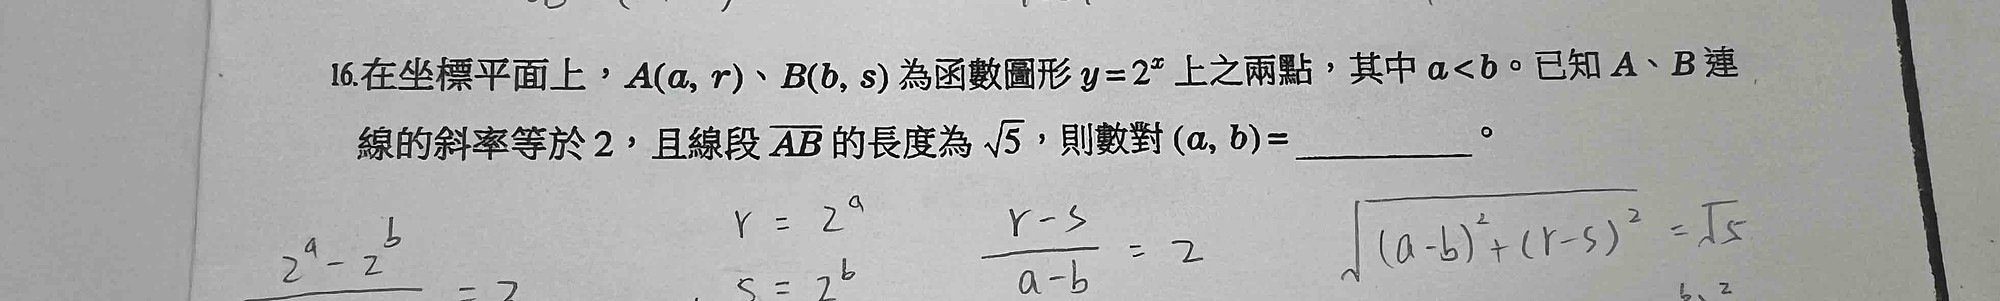 16.在坐標平面上，A(a, r)、B(b, s) 為函數圖形 y=2ˣ 上之兩點，其中 a<b。已知 A、B 連
線的斜率等於 2，且線段 A̅B̅ 的長度為 √5，則數對 (a, b)=__________。
r = 2ᵃ
(r-s)/(a-b) = 2
√((a-b)²+(r-s)²) = √5
2ᵃ-2ᵇ
= 2
s = 2ᵇ